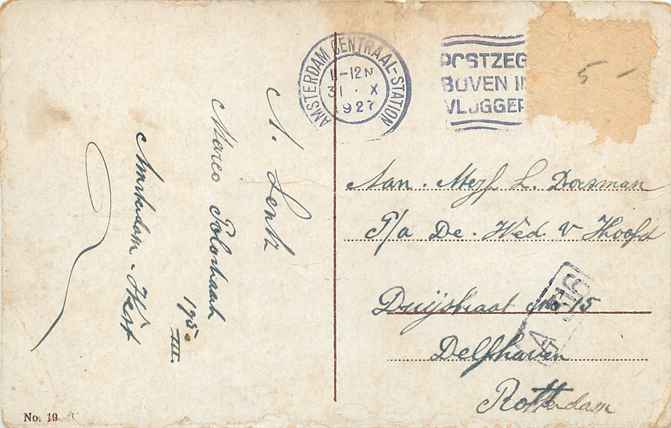 AMSTERDAM CENTRAAL-STATION
1-12N
31 · X
1927
POSTZEG
BOVEN IN
VLUGGER
5 -
A. Lentz
Marco Polostraat
195 III
Amsterdam-West
Aan. Mejf L. Dorsman
P/a De. Wed v Hoofd
Duijstraat no 15
Delfhaven
Rotterdam
No. 19